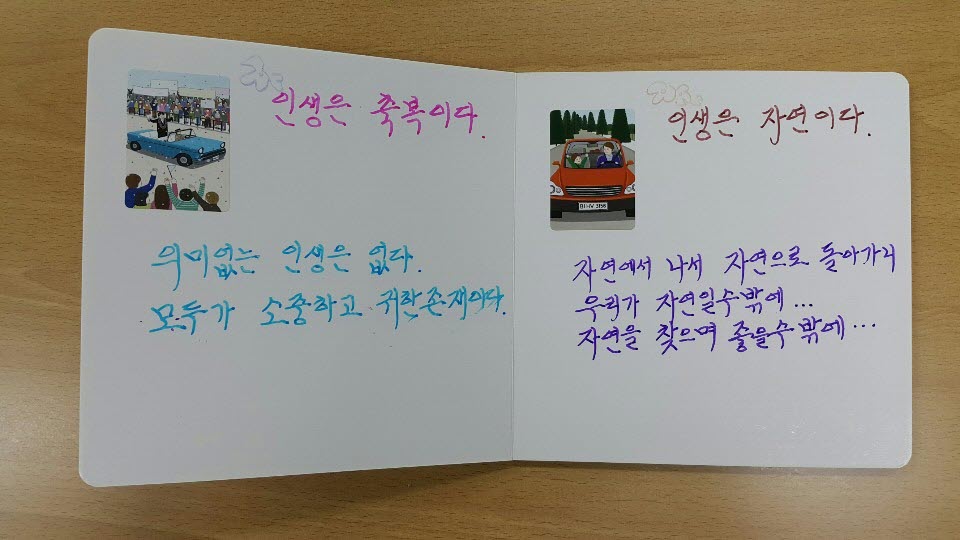 인생은 축복이다.
의미없는 인생은 없다.
모두가 소중하고 귀한존재이다.
인생은 자연이다.
자연에서 나서 자연으로 돌아가리
우리가 자연일수밖에...
자연을 찾으며 좋을수밖에...